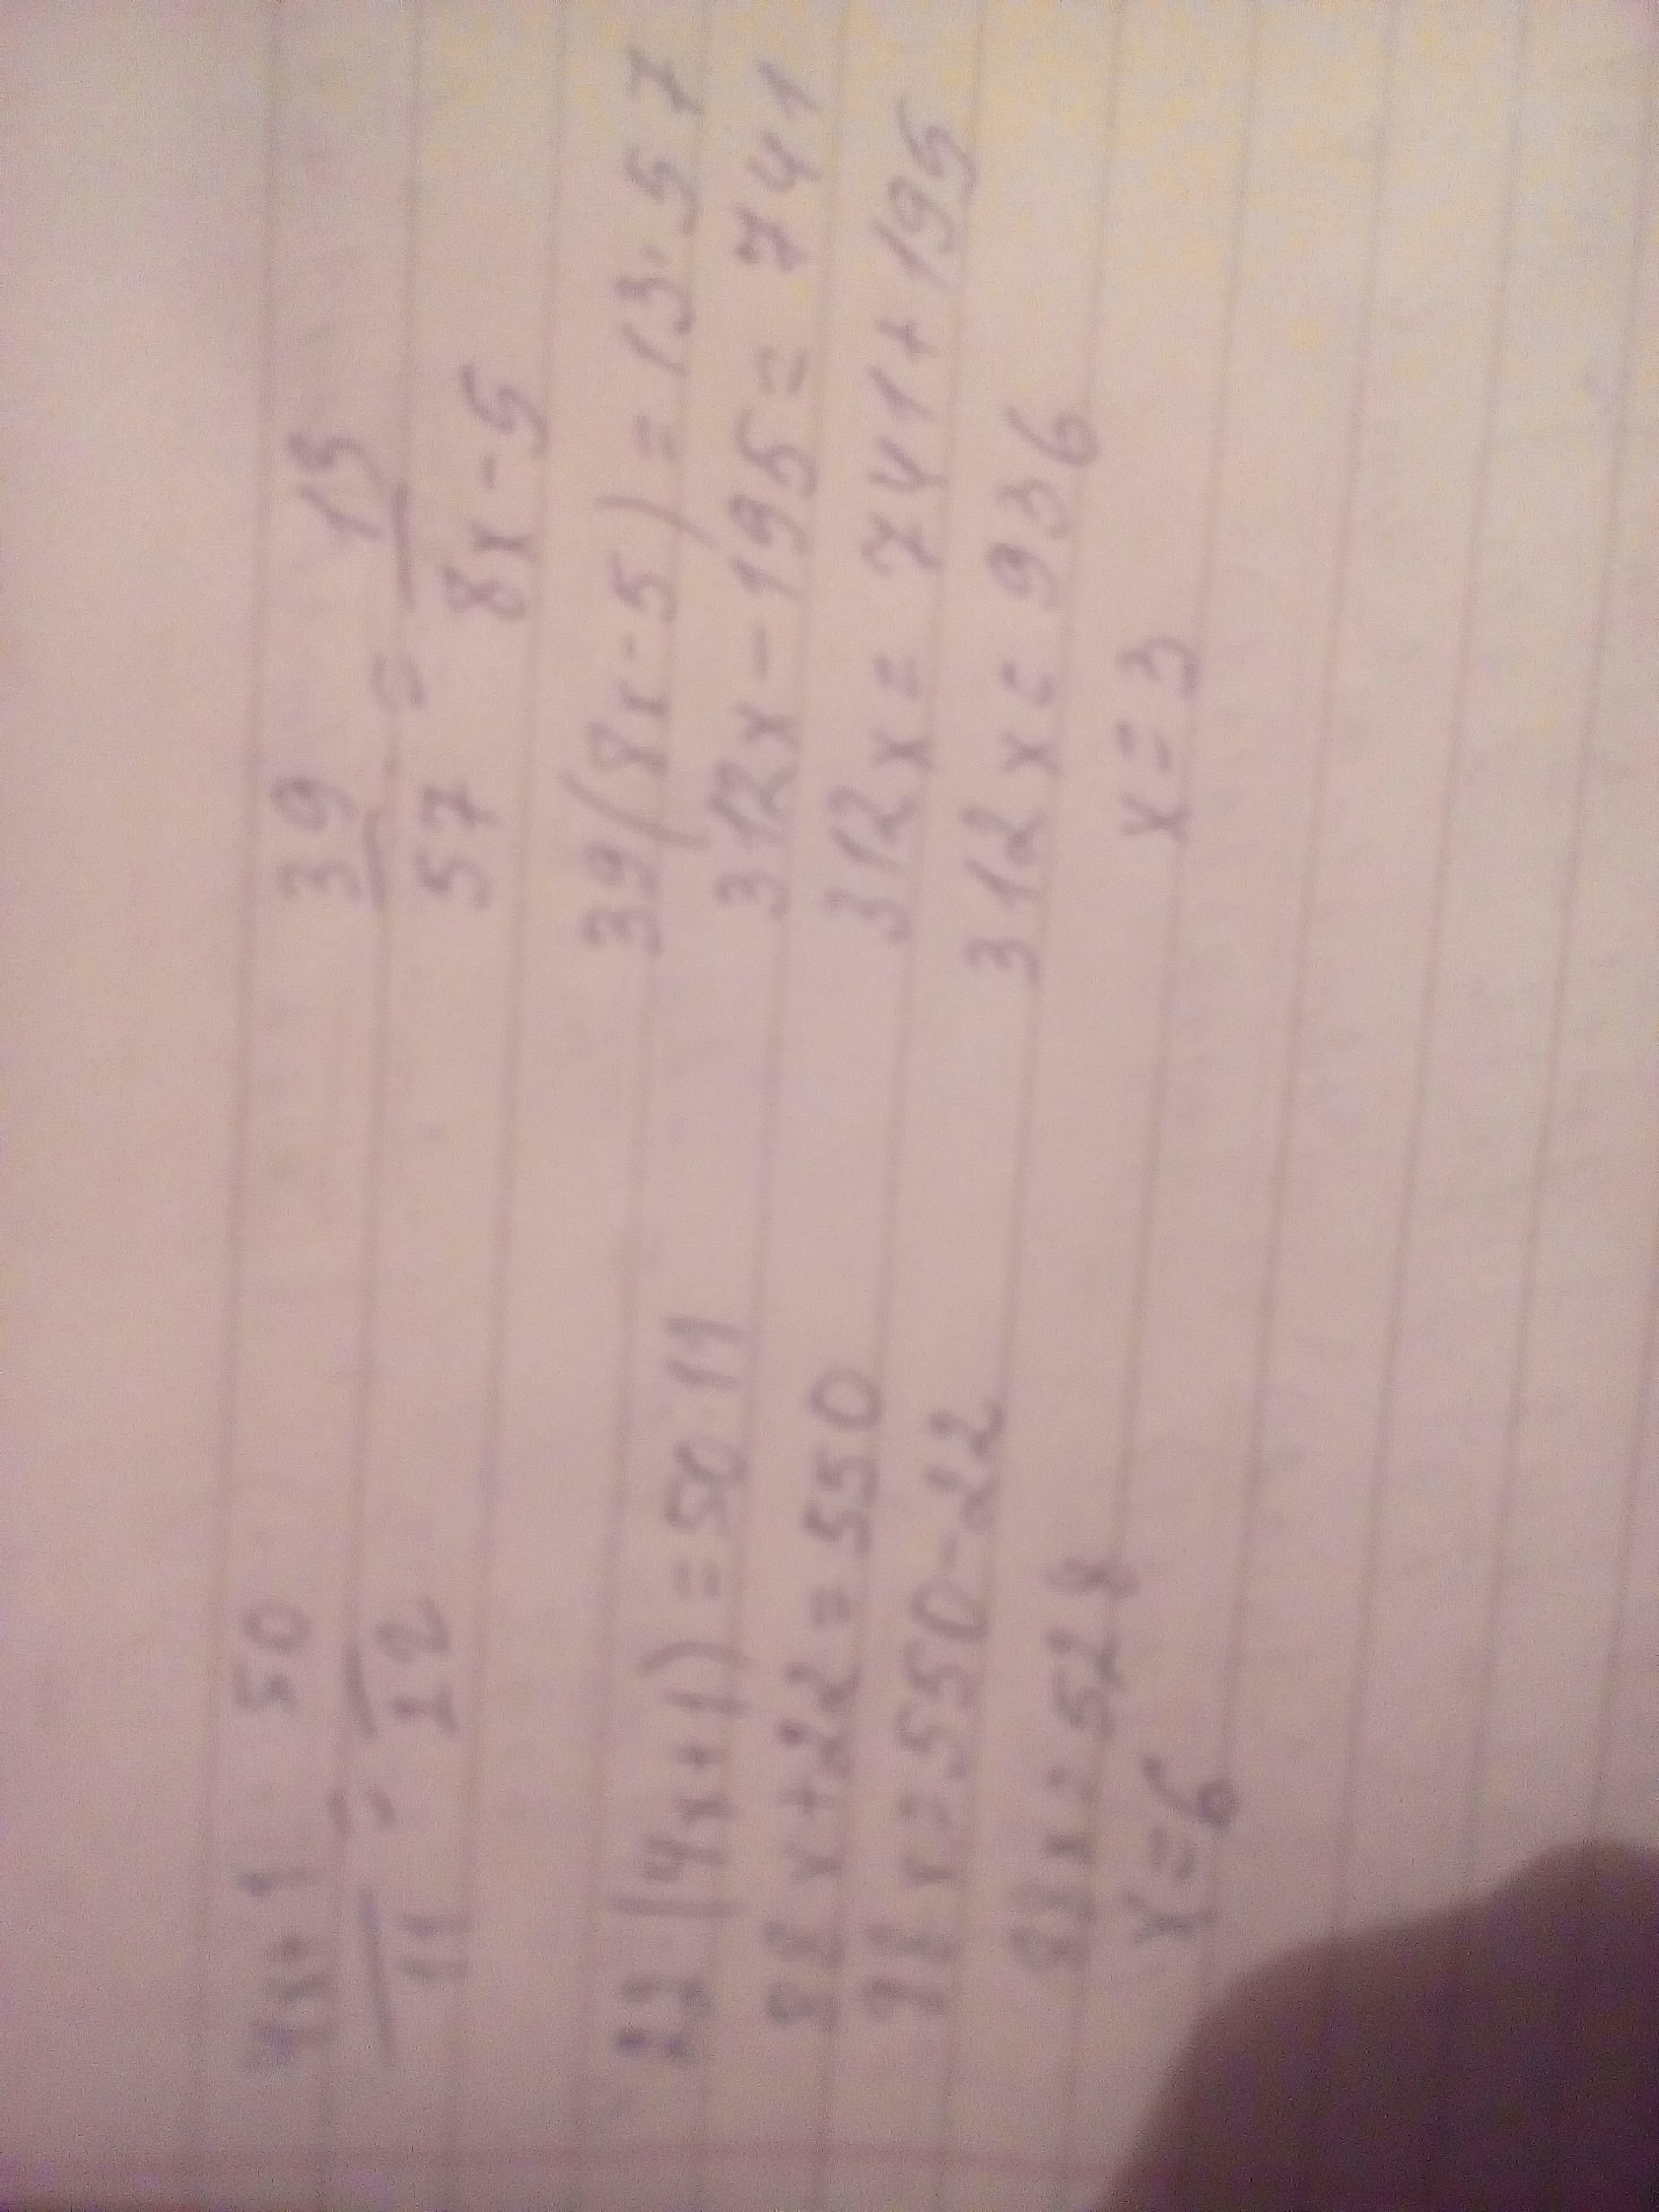 4x+1 50
— = —
11 22
22(4x+1)=50 11
88x+22=550
88x=550-22
88x=528
x=6
39 13
— = —
57 8x-5
39(8x-5)=13·57
312x-195=741
312x=741+195
312x=936
x=3